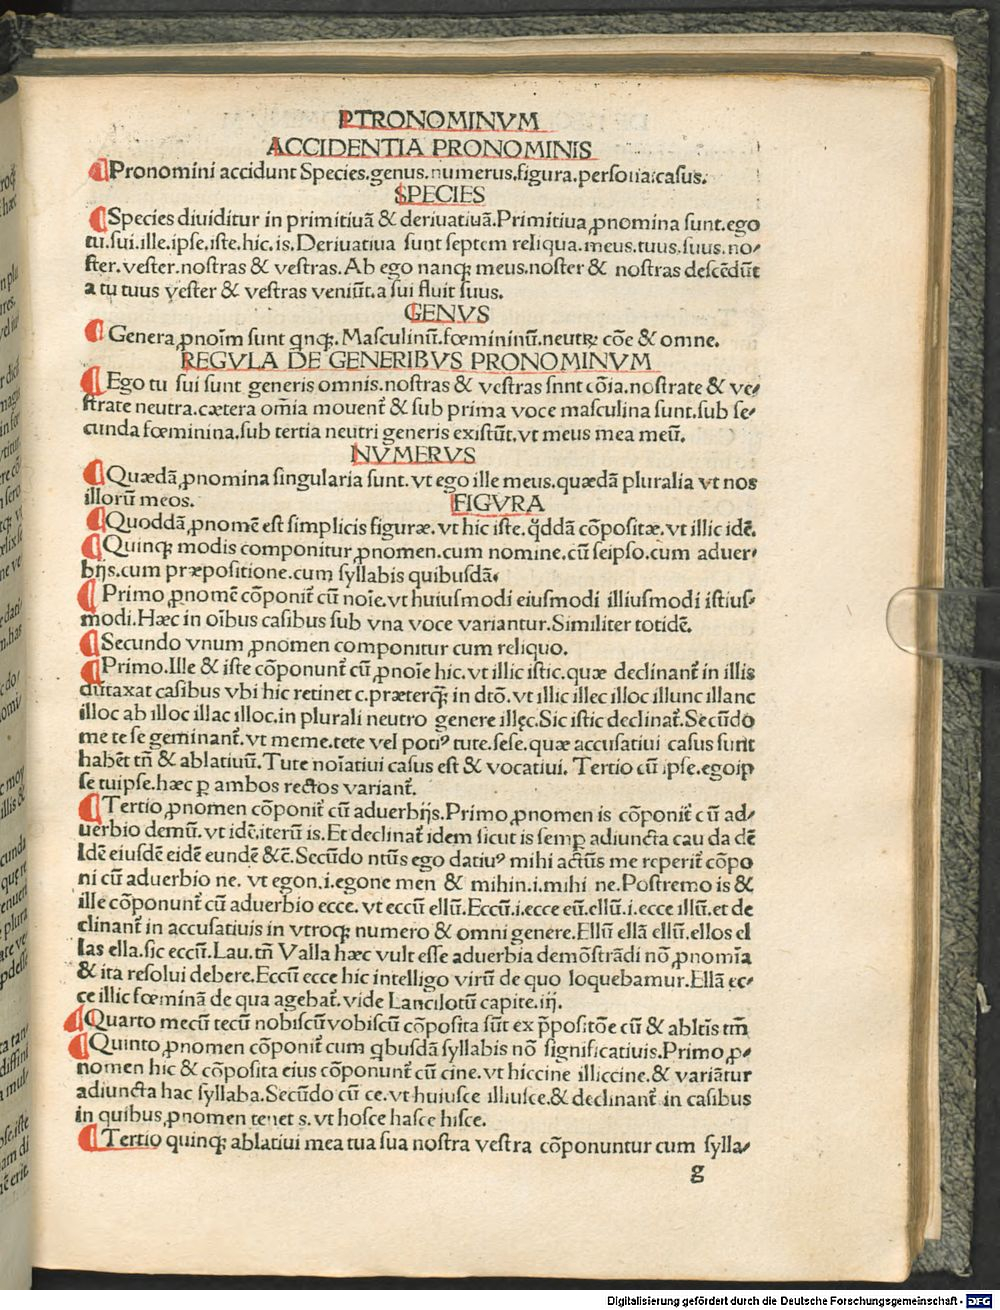 PTRONOMINVM
ACCIDENTIA PRONOMINIS
Pronomini accidunt Species.genus.numerus.figura.persona:casus.
SPECIES
Species diuiditur in primitiuã & deriuatiuã.Primitiua ꝓnomina sunt.ego
tu.sui.ille.ipse.iste.hic.is.Deriuatiua sunt septem reliqua.meus.tuus.suus.no/
ster.vester.nostras & vestras.Ab ego nanqꝫ meus.noster & nostras descẽdũt
a tu tuus vester & vestras veniũt.a sui fluit suus.
GENVS
Genera ꝓnoĩm sunt qnqꝫ. Masculinũ.fœmininũ.neutrꝫ cõe & omne.
REGVLA DE GENERIBVS PRONOMINVM
Ego tu sui sunt generis omnis.nostras & vestras snnt cõia.nostrate & ve/
strate neutra.cætera om̃ia mouent̃ & sub prima voce masculina sunt.sub se/
cunda fœminina.sub tertia neutri generis existũt.vt meus mea meũ.
NVMERVS
Quædã ꝓnomina singularia sunt.vt ego ille meus.quædã pluralia vt nos
illorũ meos.
FIGVRA
Quoddã ꝓnomẽ est simplicis figuræ.vt hic iste.q̃ddã cõpositæ.vt illic idẽ.
Quinqꝫ modis componitur ꝓnomen.cum nomine.cũ seipso.cum aduer/
bijs.cum præpositione.cum syllabis quibusdã.
Primo ꝓnomẽ cõponit̃ cũ noĩe.vt huiusmodi eiusmodi illiusmodi istius/
modi.Hæc in oĩbus casibus sub vna voce variantur.Similiter totidẽ.
Secundo vnum ꝓnomen componitur cum reliquo.
Primo.Ille & iste cõponunt̃ cũ ꝓnoĩe hic.vt illic istic.quæ declinant̃ in illis
dũtaxat casibus vbi hic retinet c.præterqꝫ in dtõ.vt illic illec illoc illunc illanc
illoc ab illoc illac illoc.in plurali neutro genere illęc.Sic istic declinat̃.Secũdo
me te se geminant̃.vt meme.tete vel poti⁹ tute.sese.quæ accusatiui casus sunt
habẽt tñ & ablatiuũ.Tute noĩatiui casus est & vocatiui. Tertio cũ ipse.egoip
se tuipse.hæc ꝑ ambos rectos variant̃.
Tertio ꝓnomen cõponit̃ cũ aduerbijs.Primo ꝓnomen is cõponit̃ cũ ad/
uerbio demũ.vt idẽ.iterũ is.Et declinat̃ idem sicut is semꝑ adiuncta cau da dẽ
Idẽ eiusdẽ eidẽ eundẽ &c̃.Secũdo ntũs ego datiu⁹ mihi actũs me reperit̃ cõpo
ni cũ aduerbio ne. vt egon.i.egone men & mihin.i.mihi ne.Postremo is &
ille cõponunt̃ cũ aduerbio ecce. vt eccũ ellũ.Eccũ.i.ecce eũ.ellũ.i.ecce illũ.et de
clinant̃ in accusatiuis in vtroqꝫ numero & omni genere.Ellũ ellã ellũ.ellos el
las ella.sic eccũ.Lau.tñ Valla hæc vult esse aduerbia demõstrãdi nõ ꝓnom̃ia
& ita resolui debere.Eccũ ecce hic intelligo virũ de quo loquebamur.Ellã ec/
ce illic fœminã de qua agebat̃.vide Lancilotũ capite.iij.
Quarto mecũ tecũ nobiscũ vobiscũ cõposita sũt ex p̃positõe cũ & abltĩs tm̃
Quinto ꝓnomen cõponit̃ cum qbusdã syllabis nõ significatiuis.Primo ꝓ/
nomen hic & cõposita eius cõponunt̃ cũ cine.vt hiccine illiccine.& variãtur
adiuncta hac syllaba.Secũdo cũ ce.vt huiusce illiusce.& declinant̃ in casibus
in quibus ꝓnomen tenet s.vt hosce hasce hisce.
Tertio quinqꝫ ablatiui mea tua sua nostra vestra cõponuntur cum sylla/
g
Digitalisierung gefördert durch die Deutsche Forschungsgemeinschaft - DFG